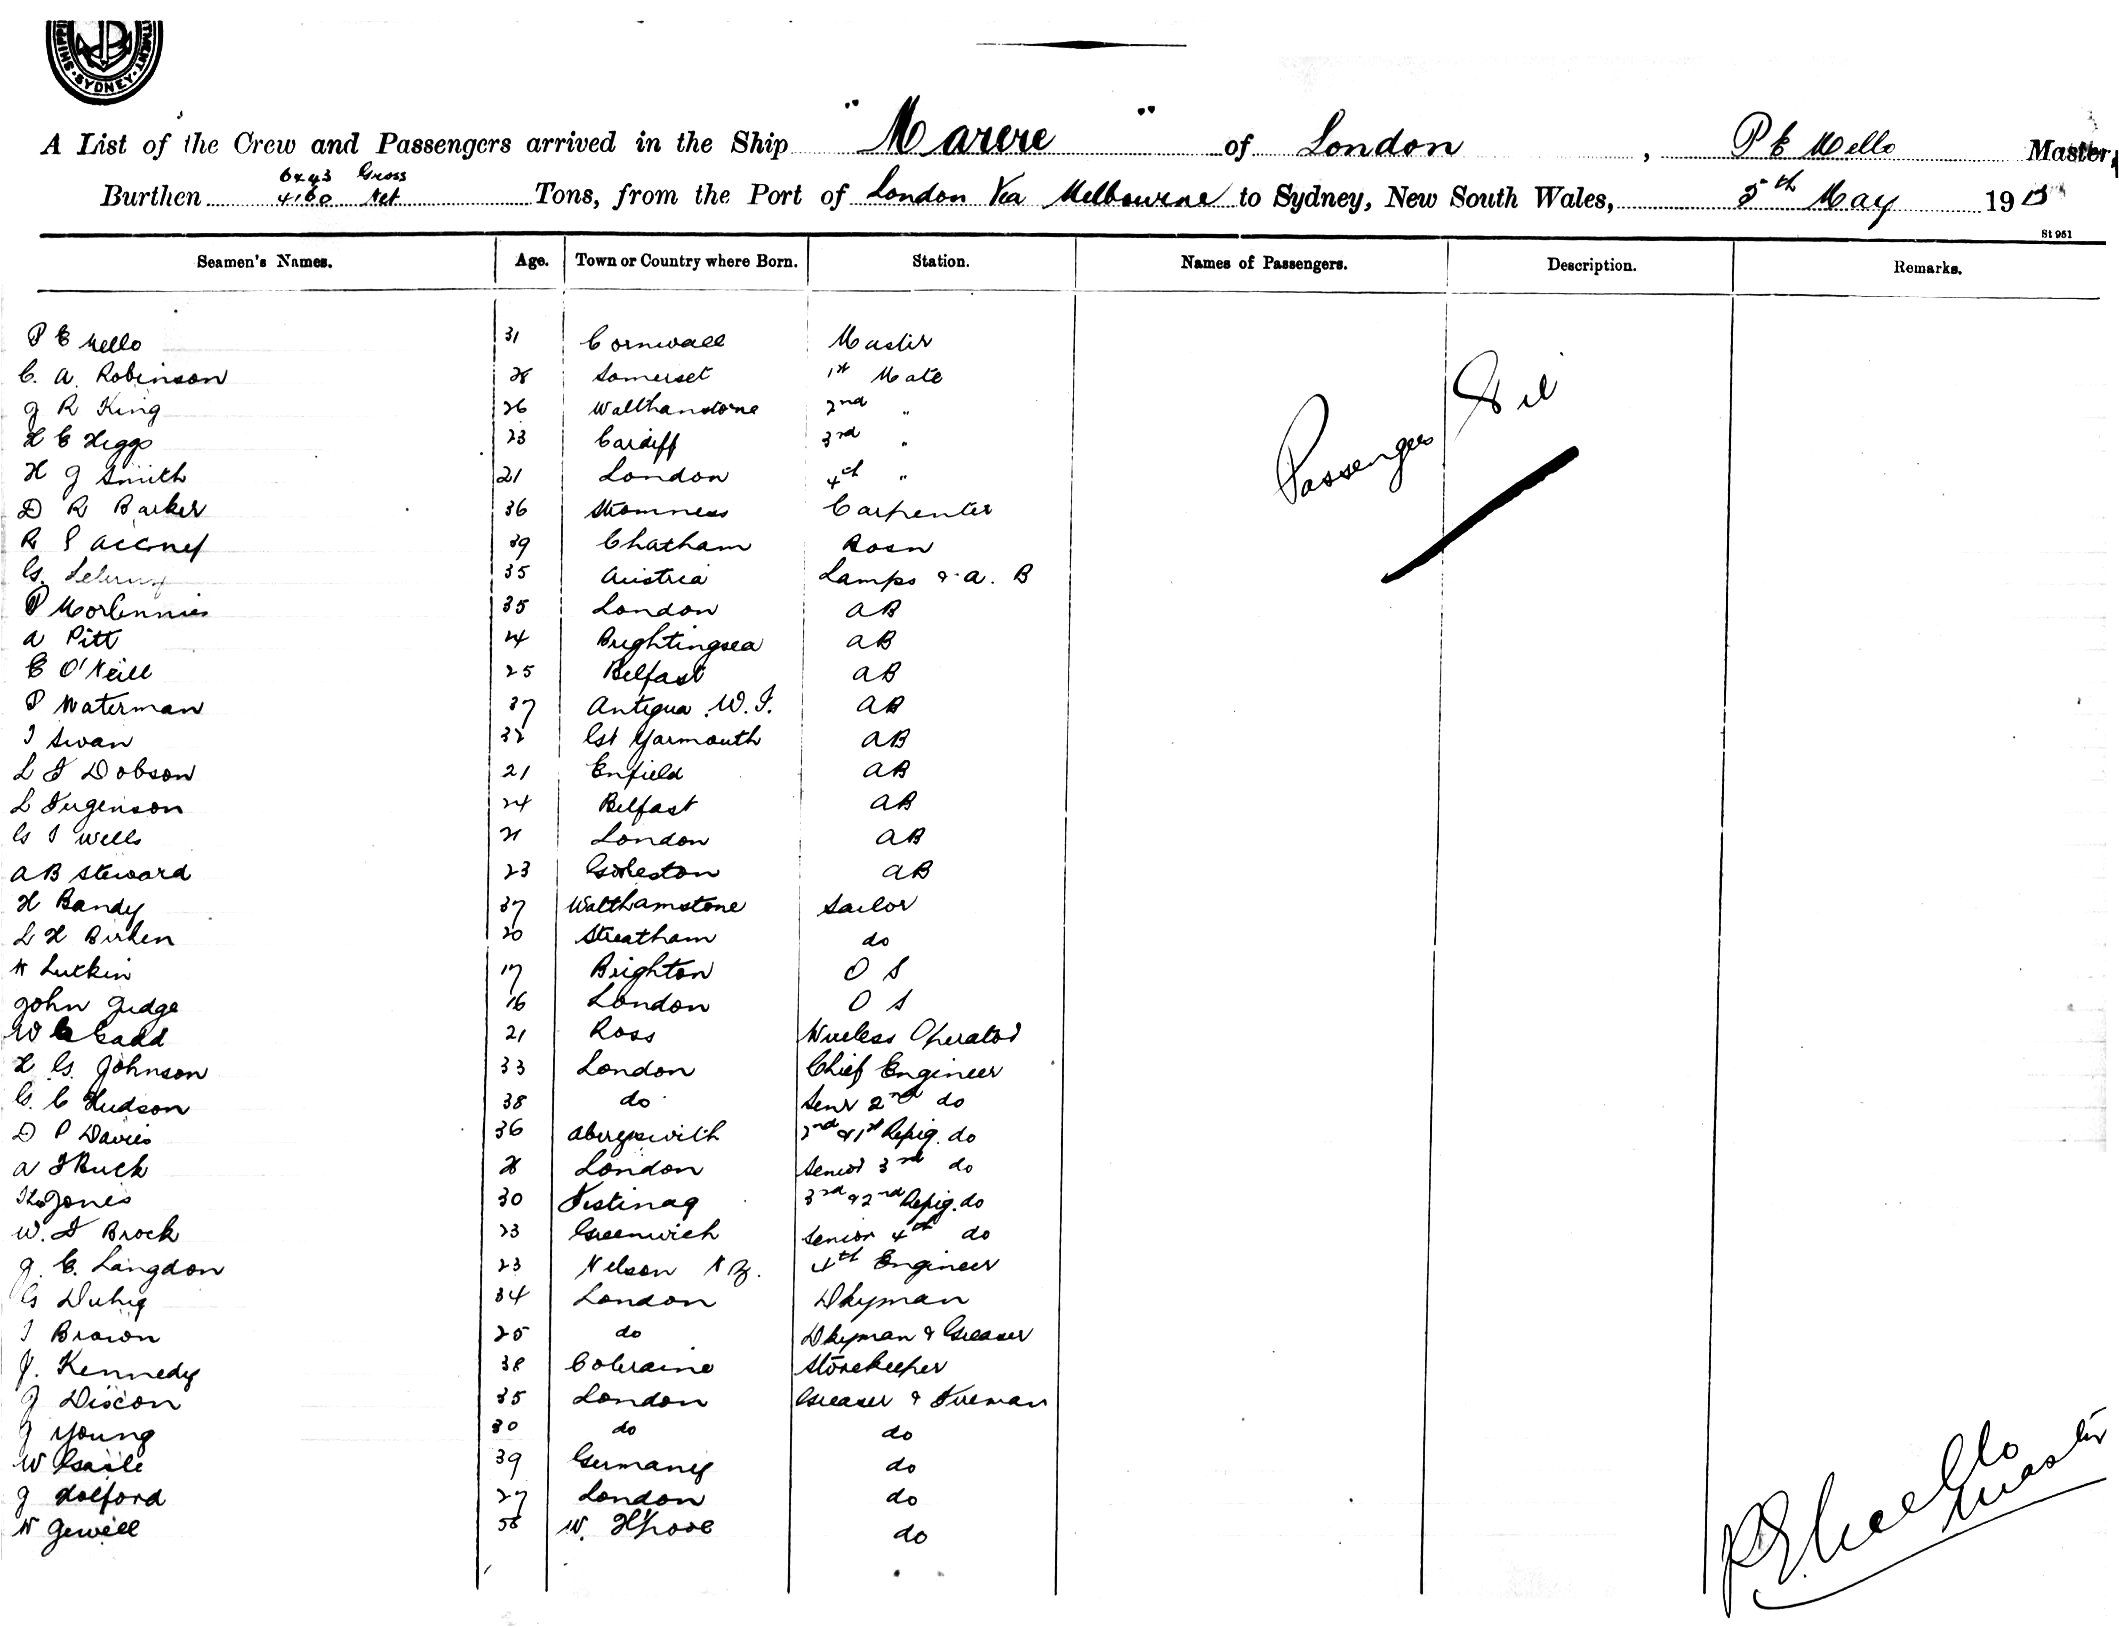 SYDNEY
A List of the Crew and Passengers arrived in the Ship "Marere" of London, P E Mello Master,
Burthen 6443 Gross 4160 Net Tons, from the Port of London Via Melbourne to Sydney, New South Wales, 5th May 1915
St 951
Seamen's Names. Age. Town or Country where Born. Station. Names of Passengers. Description. Remarks.
P E Mello 31 Cornwall Master
C. A. Robinson 28 Somerset 1st Mate
J R King 26 Walthamstone 2nd "
H E Higgs 23 Cardiff 3rd "
H J Smith 21 London 4th "
Passengers Nil
D R Barker 36 Stromness Carpenter
R 39 Chatham Bosn
G. 35 Austria Lamps & A. B
P 35 London AB
A Pitt 24 Brightingsea AB
E O'Neill 25 Belfast AB
P Waterman 37 Antigua W.I. AB
J Swan 32 Gt Yarmouth AB
L F Dobson 21 Enfield AB
L Furgenson 24 Belfast AB
G J Wells 21 London AB
A B Steward 23 Gorleston AB
H Bandy 37 Walthamstone Sailor
L H Birken 20 Streatham do
N Lutkin 17 Brighton O S
John Judge 16 London O S
W C Gadd 21 Ross Wireless Operator
H G. Johnson 33 London Chief Engineer
G. C Hudson 38 do Senr 2nd do
D P Davies 36 Aberyswith 2nd & 1st Refrig. do
A F Buck 28 London Senior 3rd do
Thos Jones 30 Festinag 3rd & 2nd Refrig. do
W. F Brock 23 Greenwich Senior 4th do
J. E. Langdon 23 Nelson N Z. 4th Engineer
G Duhig 34 London Dkyman
J Brown 25 do Dkyman & Greaser
J. Kennedy 38 Coleraine Storekeeper
J Discon 35 London Greaser & Fireman
J Young 30 do do
W 39 Germany do
J Holford 27 London do
W Jewell 56 W. H'pool do
P E Mello Master